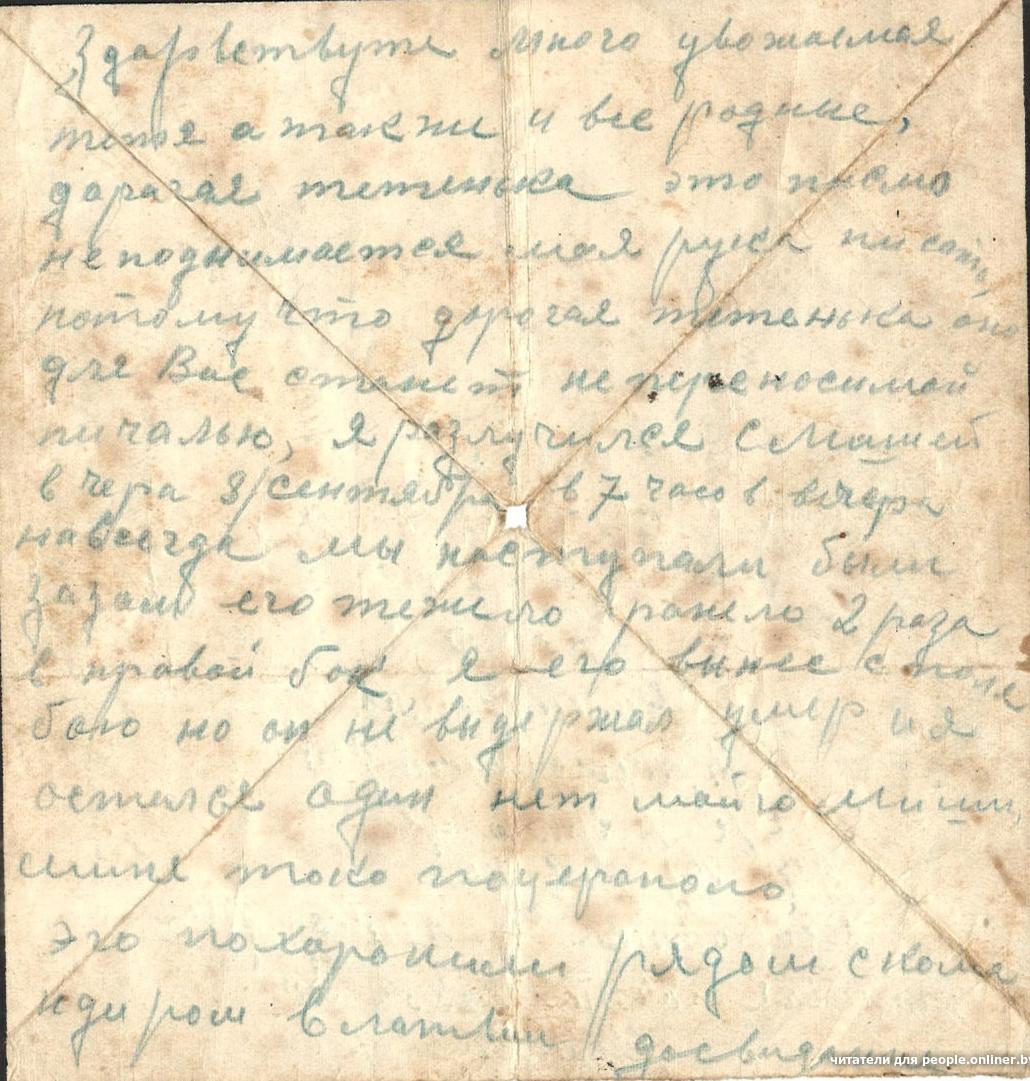 Здарвствуте много уважаемая
тетя а также и все родные,
дарагая тетенька это письмо
неподнимается мая рука писать
потому что дорогая тетенька оно
для Вас станет непереносимой
пичалью, я разлучился с Мишей
вчера 8/сентября в 7 часов вечера
навсегда мы наступали были
его тежило ранело 2 раза
в правой бок я его вынес споля
бою но он не выдержал умер и я
осталсе один нет майго Миши,
мине токо поцерапало,
эго похаронили рядом скома
ндиром Влатвии досвидания
читатели для people.onliner.by